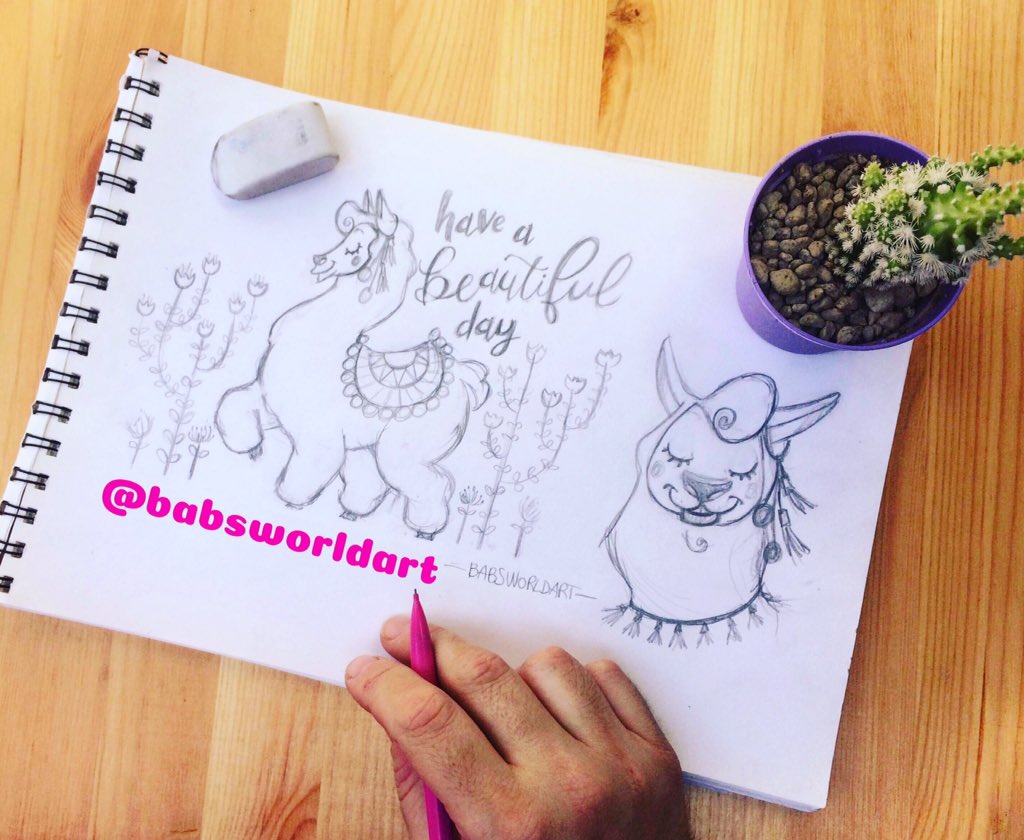 have a
beautiful
day
@babsworldart
—BABSWORLDART—